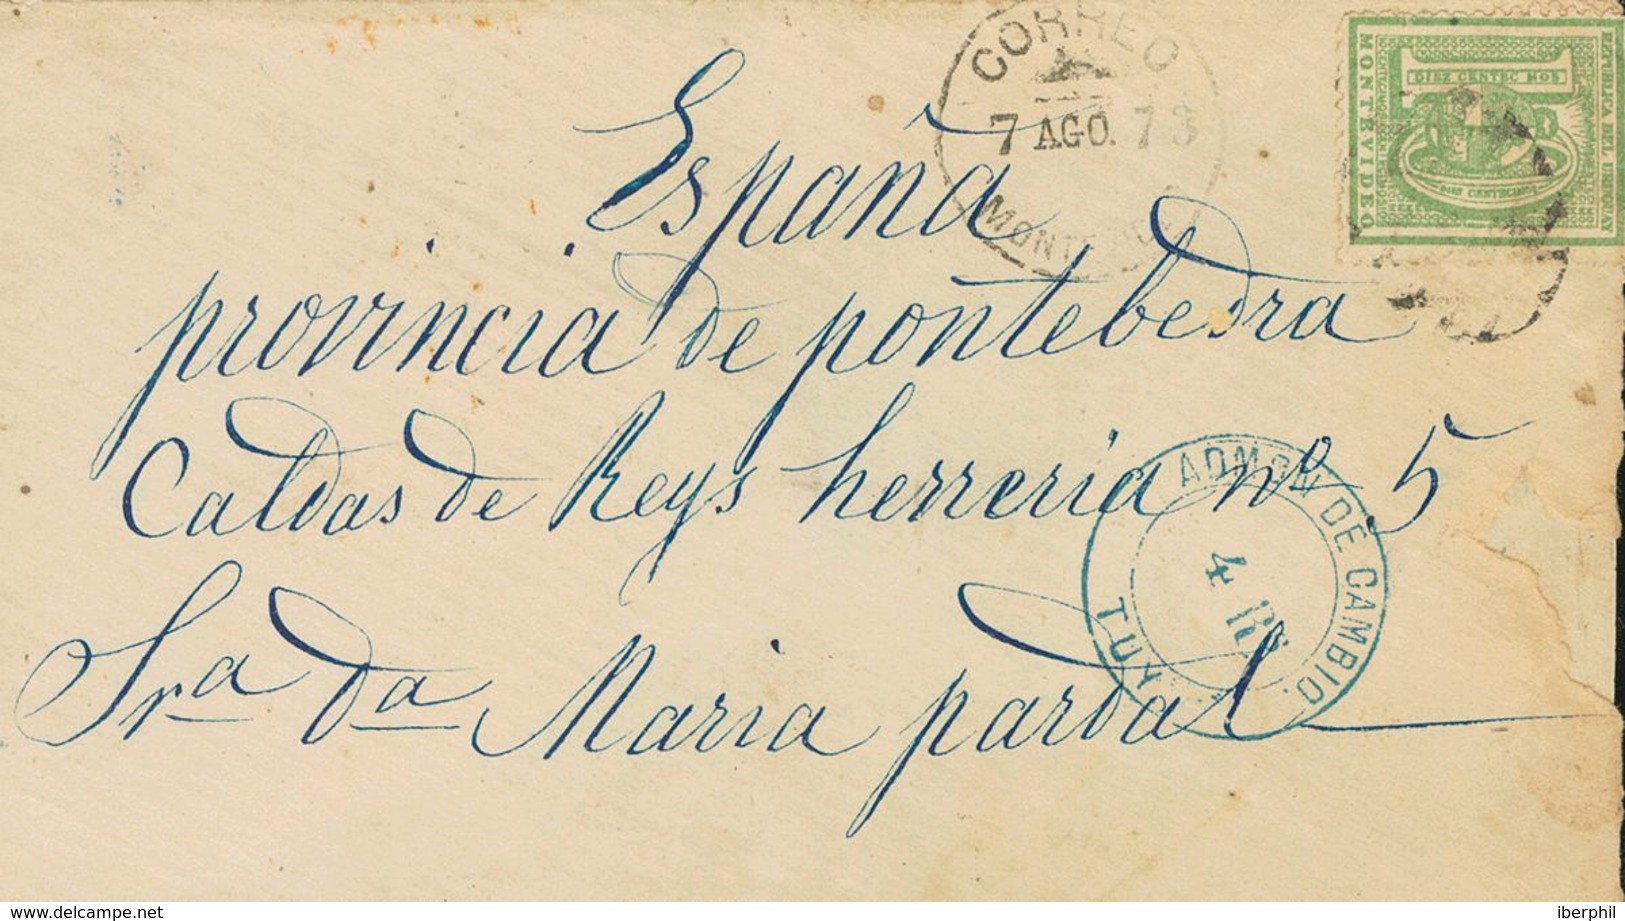 CORREO
7 AGO. 73
MONTEVIDEO
REPUBLICA DEL URUGUAY
DIEZ CENTEC MOS
DIEZ CENTECIMOS
MONTEVIDEO
España
provincia de pontebedra
Caldas de Reys herreria nº 5
Sra da Maria pardal
ADMON DE CAMBIO.
4 Rs
TUY
www.delcampe.net
iberphil